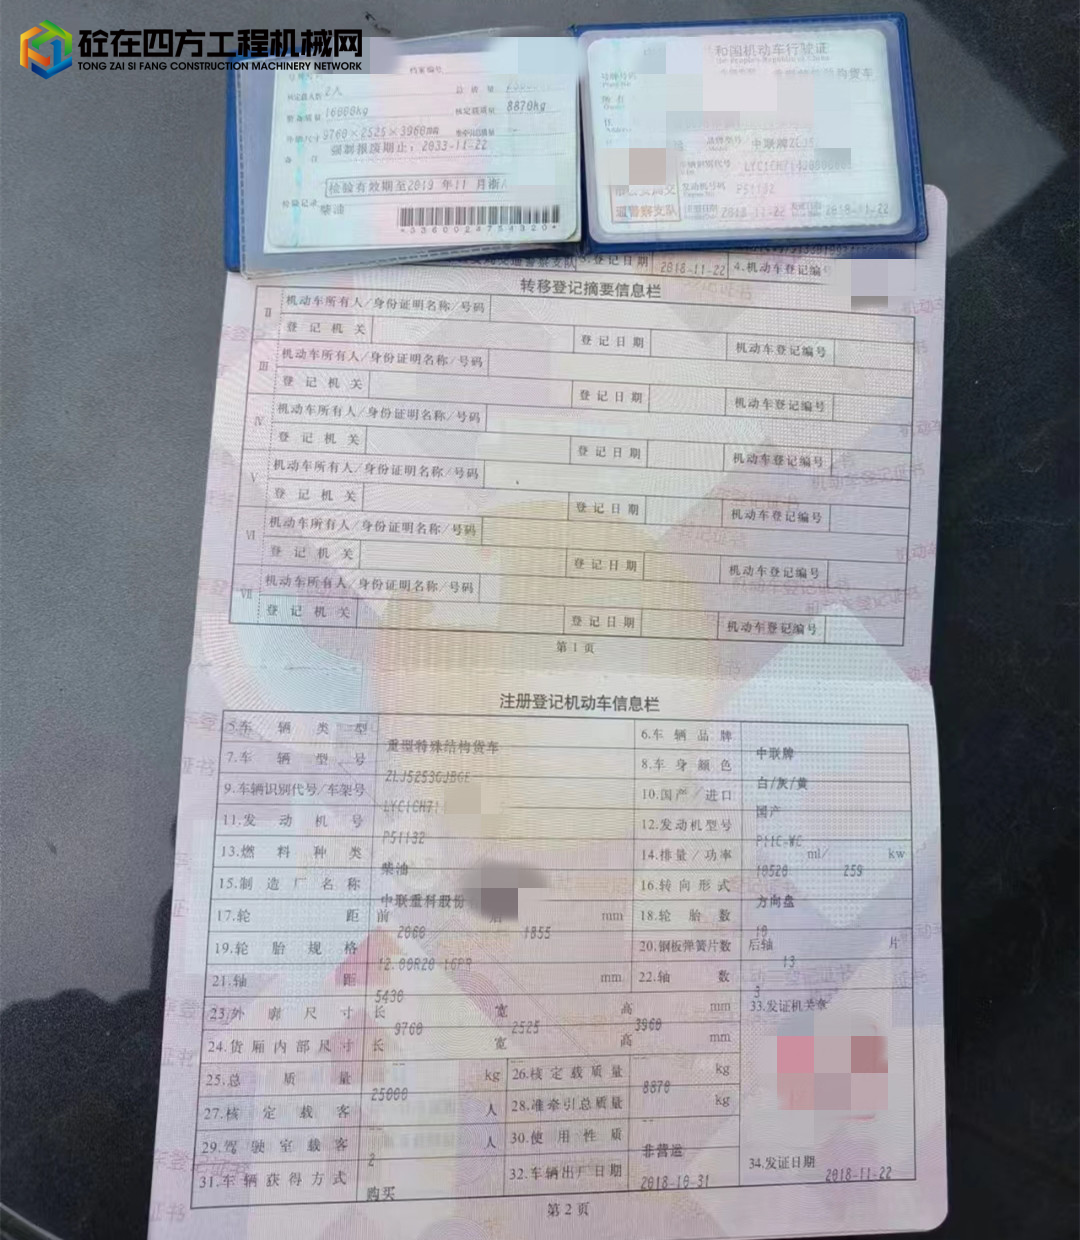 砼在四方工程机械网
TONG ZAI SI FANG CONSTRUCTION MACHINERY NETWORK
档案编号
核定载人数 2人 总质量
整备质量 16000kg 核定载质量 8870kg
外廓尺寸 9760×2525×3960mm
备注 强制报废期止：2033-11-22
检验有效期至2019 年11 月
检验记录 柴油
和国机动车行驶证
中联牌
车辆识别代号
发动机号码 P51132
2018-11-22 2018-11-22
登记日期 2018-11-22 4.机动车登记编号
转移登记摘要信息栏
II 机动车所有人/身份证明名称/号码
登记机关 登记日期 机动车登记编号
III 机动车所有人/身份证明名称/号码
登记机关 登记日期 机动车登记编号
IV 机动车所有人/身份证明名称/号码
登记机关 登记日期 机动车登记编号
V 机动车所有人/身份证明名称/号码
登记机关 登记日期 机动车登记编号
VI 机动车所有人/身份证明名称/号码
登记机关 登记日期 机动车登记编号
VII 机动车所有人/身份证明名称/号码
登记机关 登记日期 机动车登记编号
第 1 页
注册登记机动车信息栏
5.车辆类型 重型特殊结构货车 6.车辆品牌 中联牌
7.车辆型号 ZLJ5253GJBGE 8.车身颜色 白/灰/黄
9.车辆识别代号/车架号 10.国产/进口 国产
11.发动机号 P51132 12.发动机型号 P11C-WC
13.燃料种类 柴油 14.排量/功率 10520 ml/ 259 kw
15.制造厂名称 中联重科股份 16.转向形式 方向盘
17.轮距 前 2060 1855 mm 18.轮胎数 10
19.轮胎规格 12.00R20 16PR 20.钢板弹簧片数 后轴 13 片
21.轴距 5430 mm 22.轴数 3
23.外廓尺寸 长 9760 宽 2525 高 3960 mm 33.发证机关章
24.货厢内部尺寸 长 -- 宽 -- 高 -- mm
25.总质量 25000 kg 26.核定载质量 8870 kg
27.核定载客 -- 人 28.准牵引总质量 -- kg
29.驾驶室载客 2 人 30.使用性质 非营运
31.车辆获得方式 购买 32.车辆出厂日期 2018-10-31 34.发证日期 2018-11-22
第 2 页